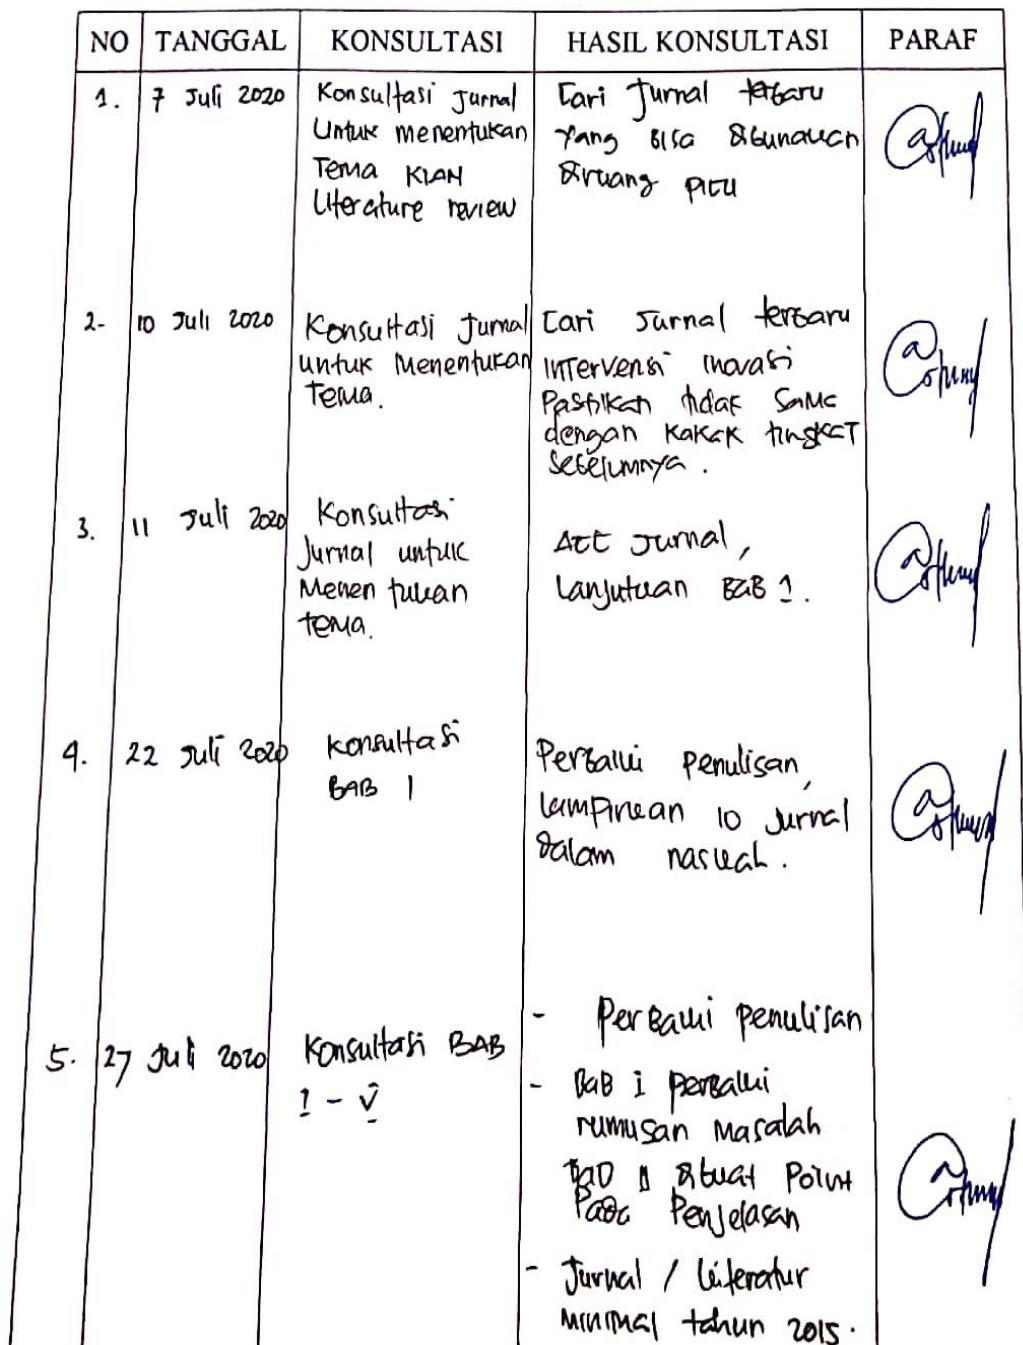 NO TANGGAL KONSULTASI HASIL KONSULTASI PARAF
1. 7 Juli 2020
Konsultasi Jurnal
Untuk menentukan
Tema KIAN
Literature review
Cari Jurnal terbaru
yang bisa digunakan
diruang PICU
2- 10 Juli 2020
Konsultasi Jurnal
untuk Menentukan
Tema.
Cari Jurnal terbaru
Intervensi inovasi
Pastikan tidak sama
dengan kakak tingkat
sebelumnya.
3. 11 Juli 2020
Konsultasi
Jurnal untuk
Menentukan
tema.
ACC Jurnal,
Lanjutkan BAB 1.
4. 22 Juli 2020
Konsultasi
BAB 1
Perbaiki penulisan,
lampirkan 10 Jurnal
dalam naskah.
5. 27 Juli 2020
Konsultasi BAB
I - V
- Perbaiki penulisan
- BAB I perbaiki
rumusan Masalah
BAB II dibuat Point
Pada Penjelasan
- Jurnal / Literatur
Minimal tahun 2015.